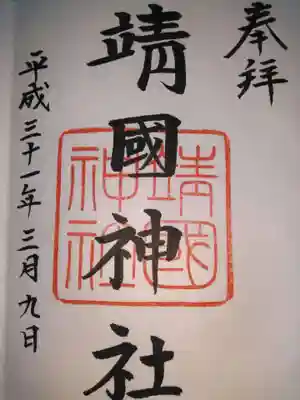 奉拝
靖國神社
靖國
神社
平成三十一年三月九日